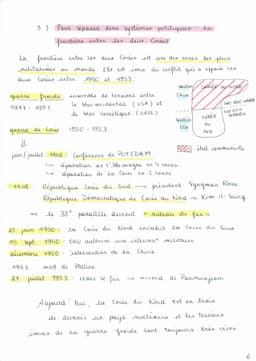 3) Pour séparer deux systèmes politiques : la
frontière entre les deux Corées
La frontière entre les deux Corées est une des zones les plus
militarisées au monde. Elle est issue du conflit qui a opposé les
deux Corées entre 1950 et 1953.
guerre froide ensemble de tensions entre
1947 - 1991 le bloc occidental (USA) et
le bloc soviétique (URSS)
guerre de Corée 1950 - 1953
CORÉE DU NORD
CORÉE
DU
SUD
état communiste
juin/juillet 1945 Conférence de POTSDAM
↳ séparation de l'Allemagne en 4 zones
↳ séparation de la Corée en 2 zones
1948 République Corée du Sud → président Syngman Rhee
République Démocratique de Corée du Nord → Kim il-Sung
⇒ le 38° parallèle devient « rideau de fer »
25 juin 1950 la Corée du Nord envahit la Corée du Sud
15 sept 1950 ONU autorise une intervention militaire
décembre 1950 intervention de la Chine
1953 mort de Staline
27 juillet 1953 cessez le feu → accord de Panmunjeom
Aujourd'hui, la Corée du Nord est en train
de devenir un pays nucléaire et les tensions
issues de la guerre froide sont toujours très vives.
6